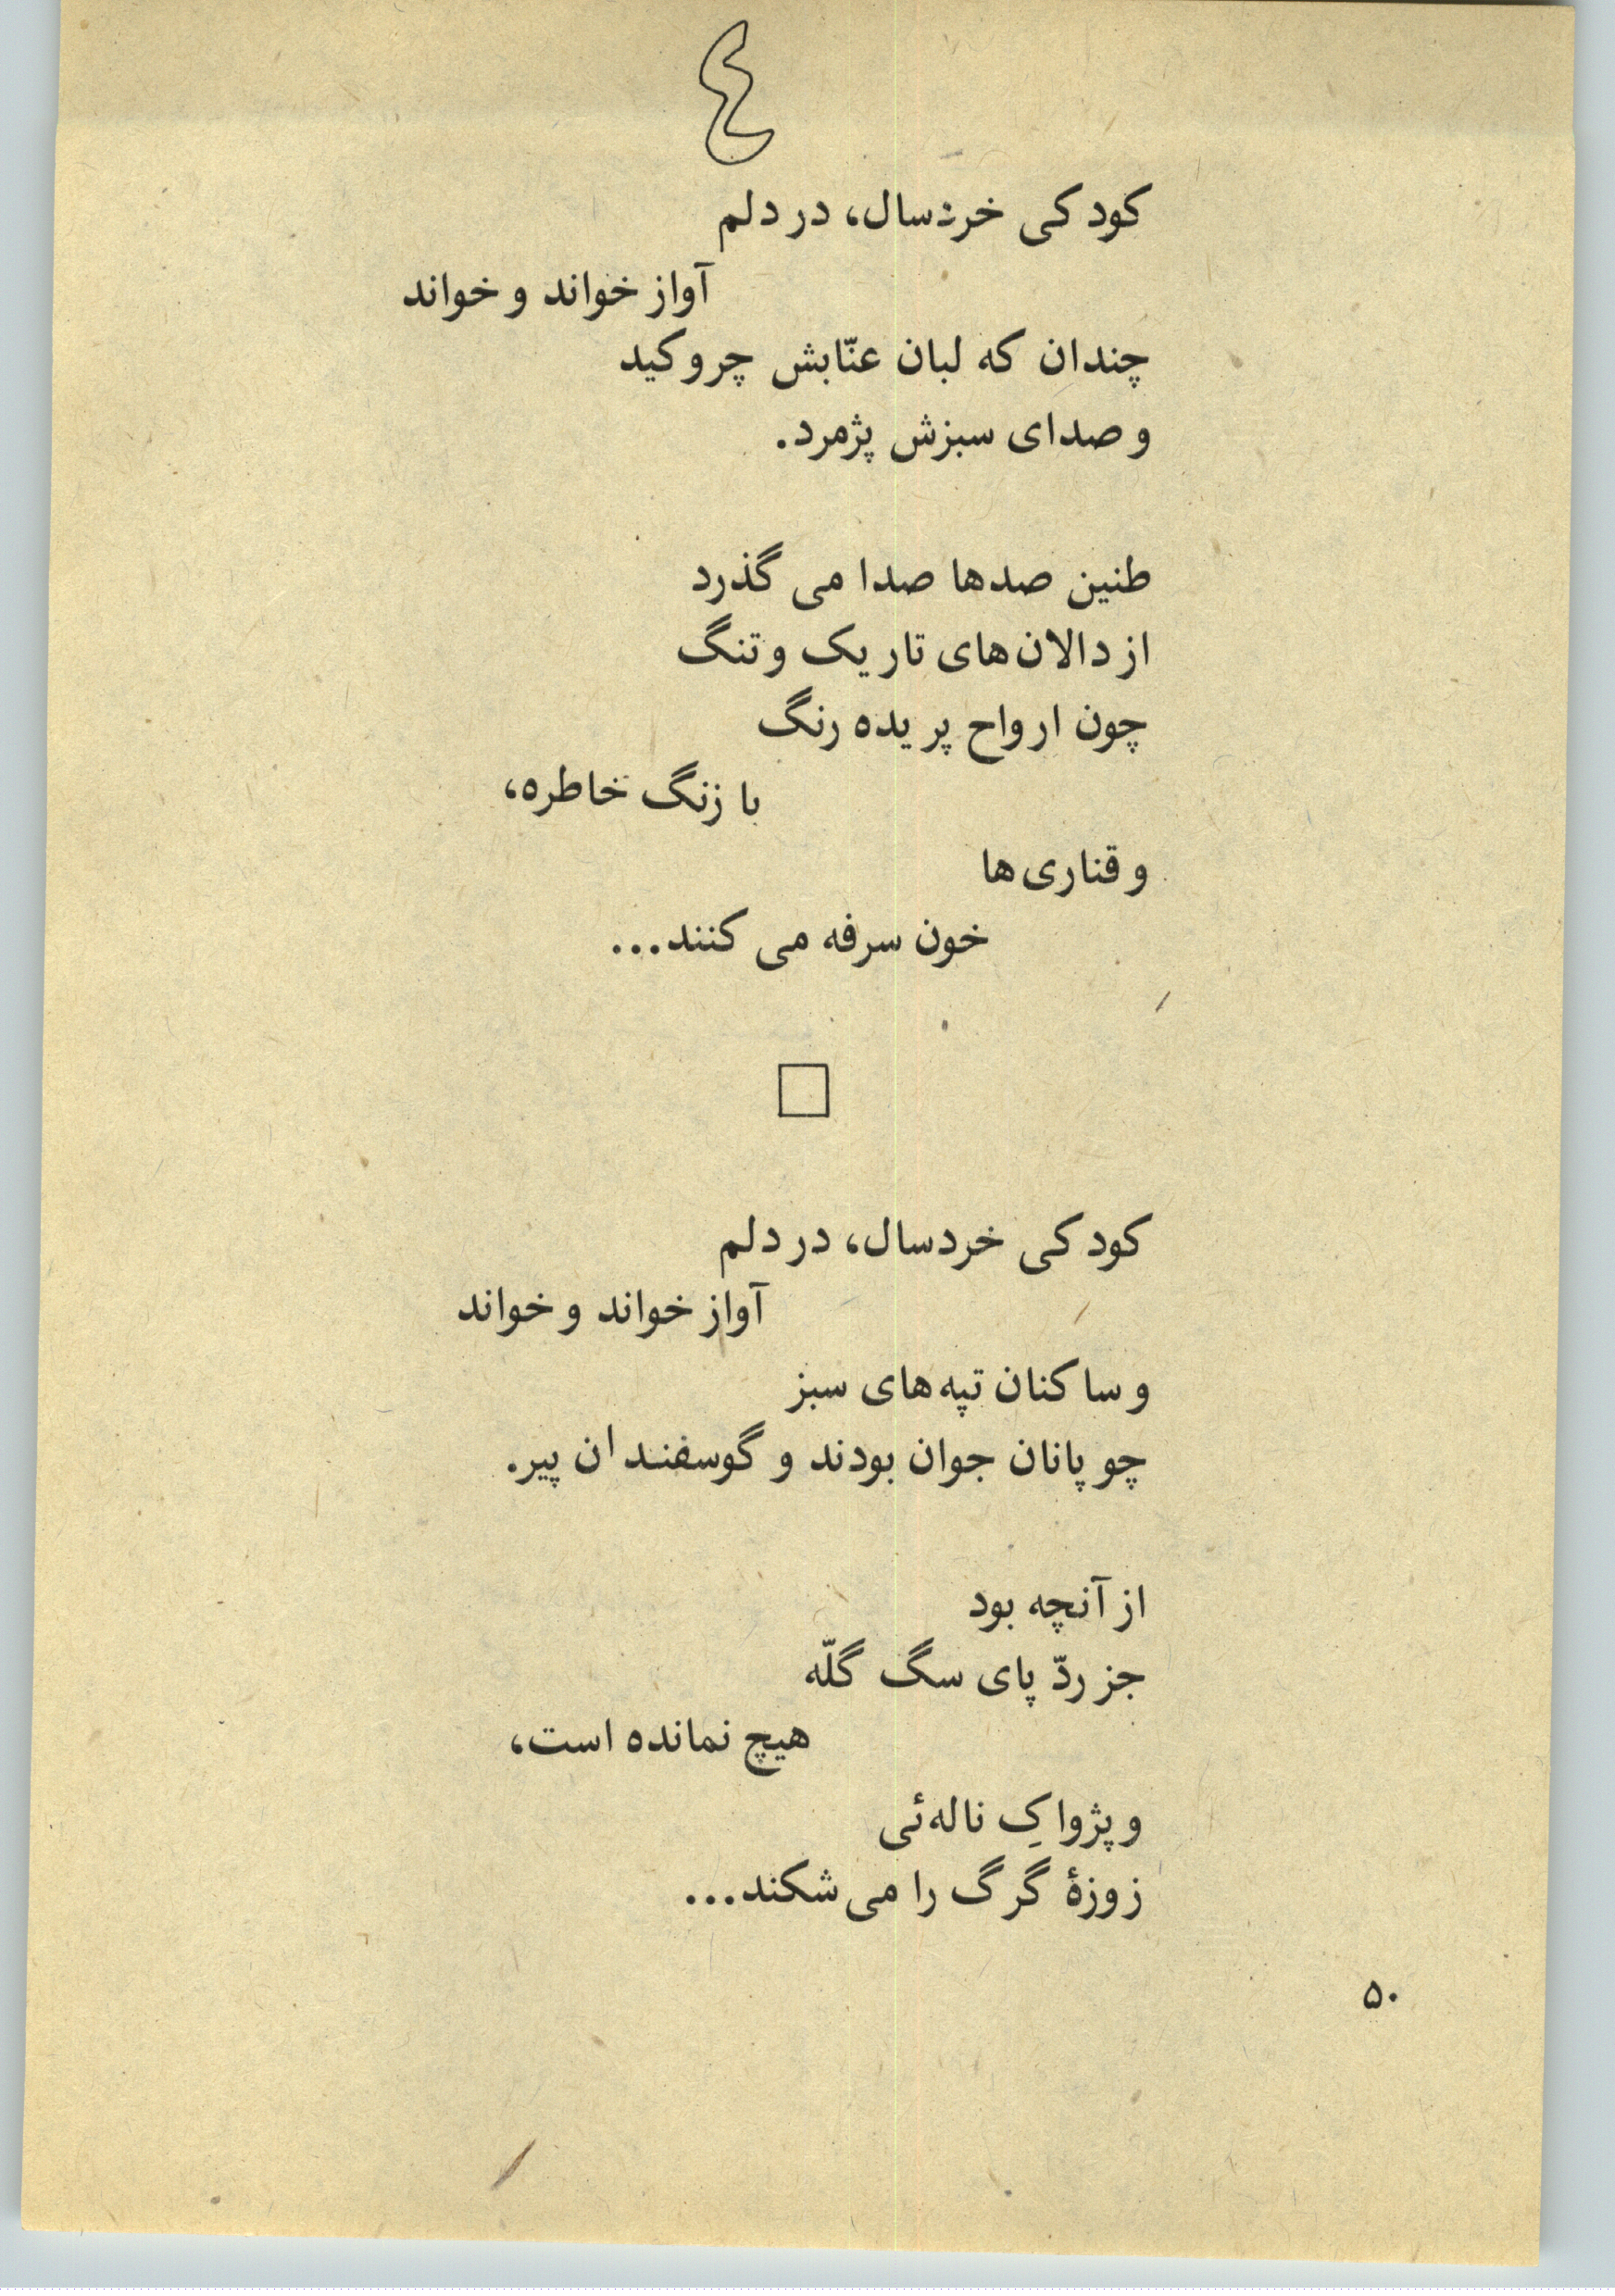 ٤
کودکی خردسال، در دلم
آواز خواند و خواند
چندان که لبان عنّابش چروکید
و صدای سبزش پژمرد.
طنین صدها صدا می گذرد
از دالان‌های تاریک و تنگ
چون ارواح پریده رنگ
با زنگ خاطره،
و قناری‌ها
خون سرفه می کنند...
کودکی خردسال، در دلم
آواز خواند و خواند
و ساکنان تپه‌های سبز
چوپانان جوان بودند و گوسفندان پیر.
از آنچه بود
جز ردّ پای سگ گلّه
هیچ نمانده است،
و پژواکِ ناله‌ئی
زوزهٔ گرگ را می‌شکند...
۵۰